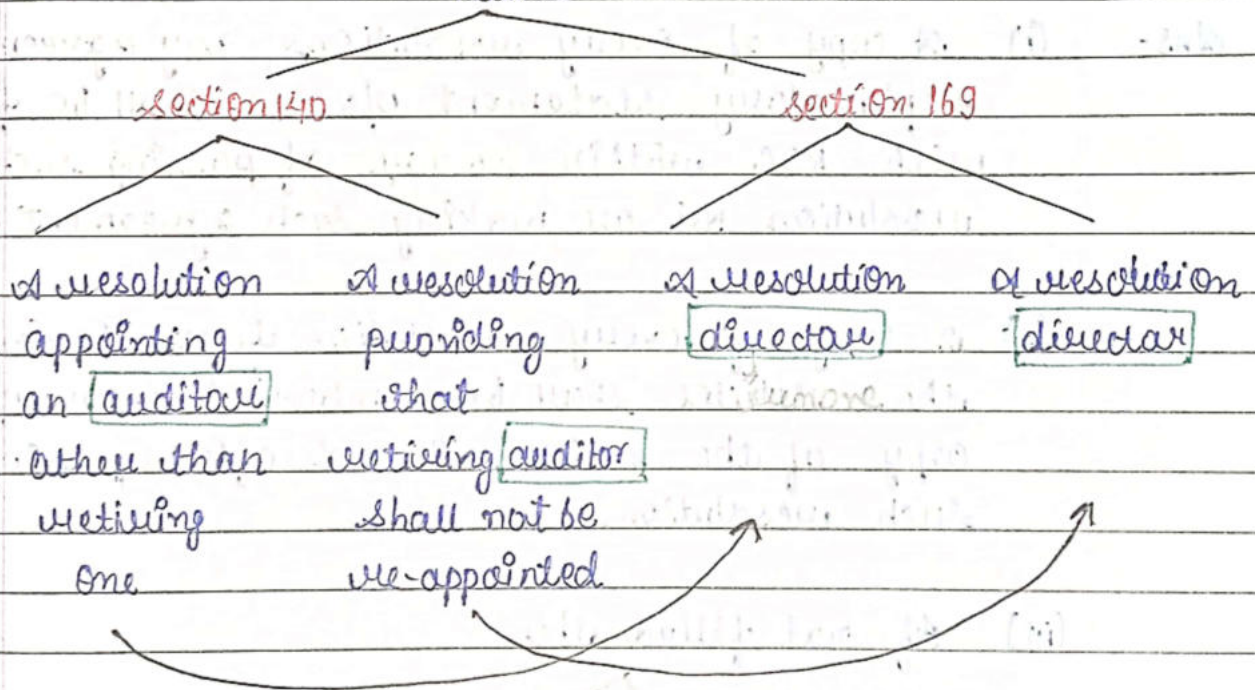 section 140
section 169
A resolution
appointing
an auditor
other than
retiring
one
A resolution
providing
that
retiring auditor
shall not be
re-appointed
A resolution
director
A resolution
director